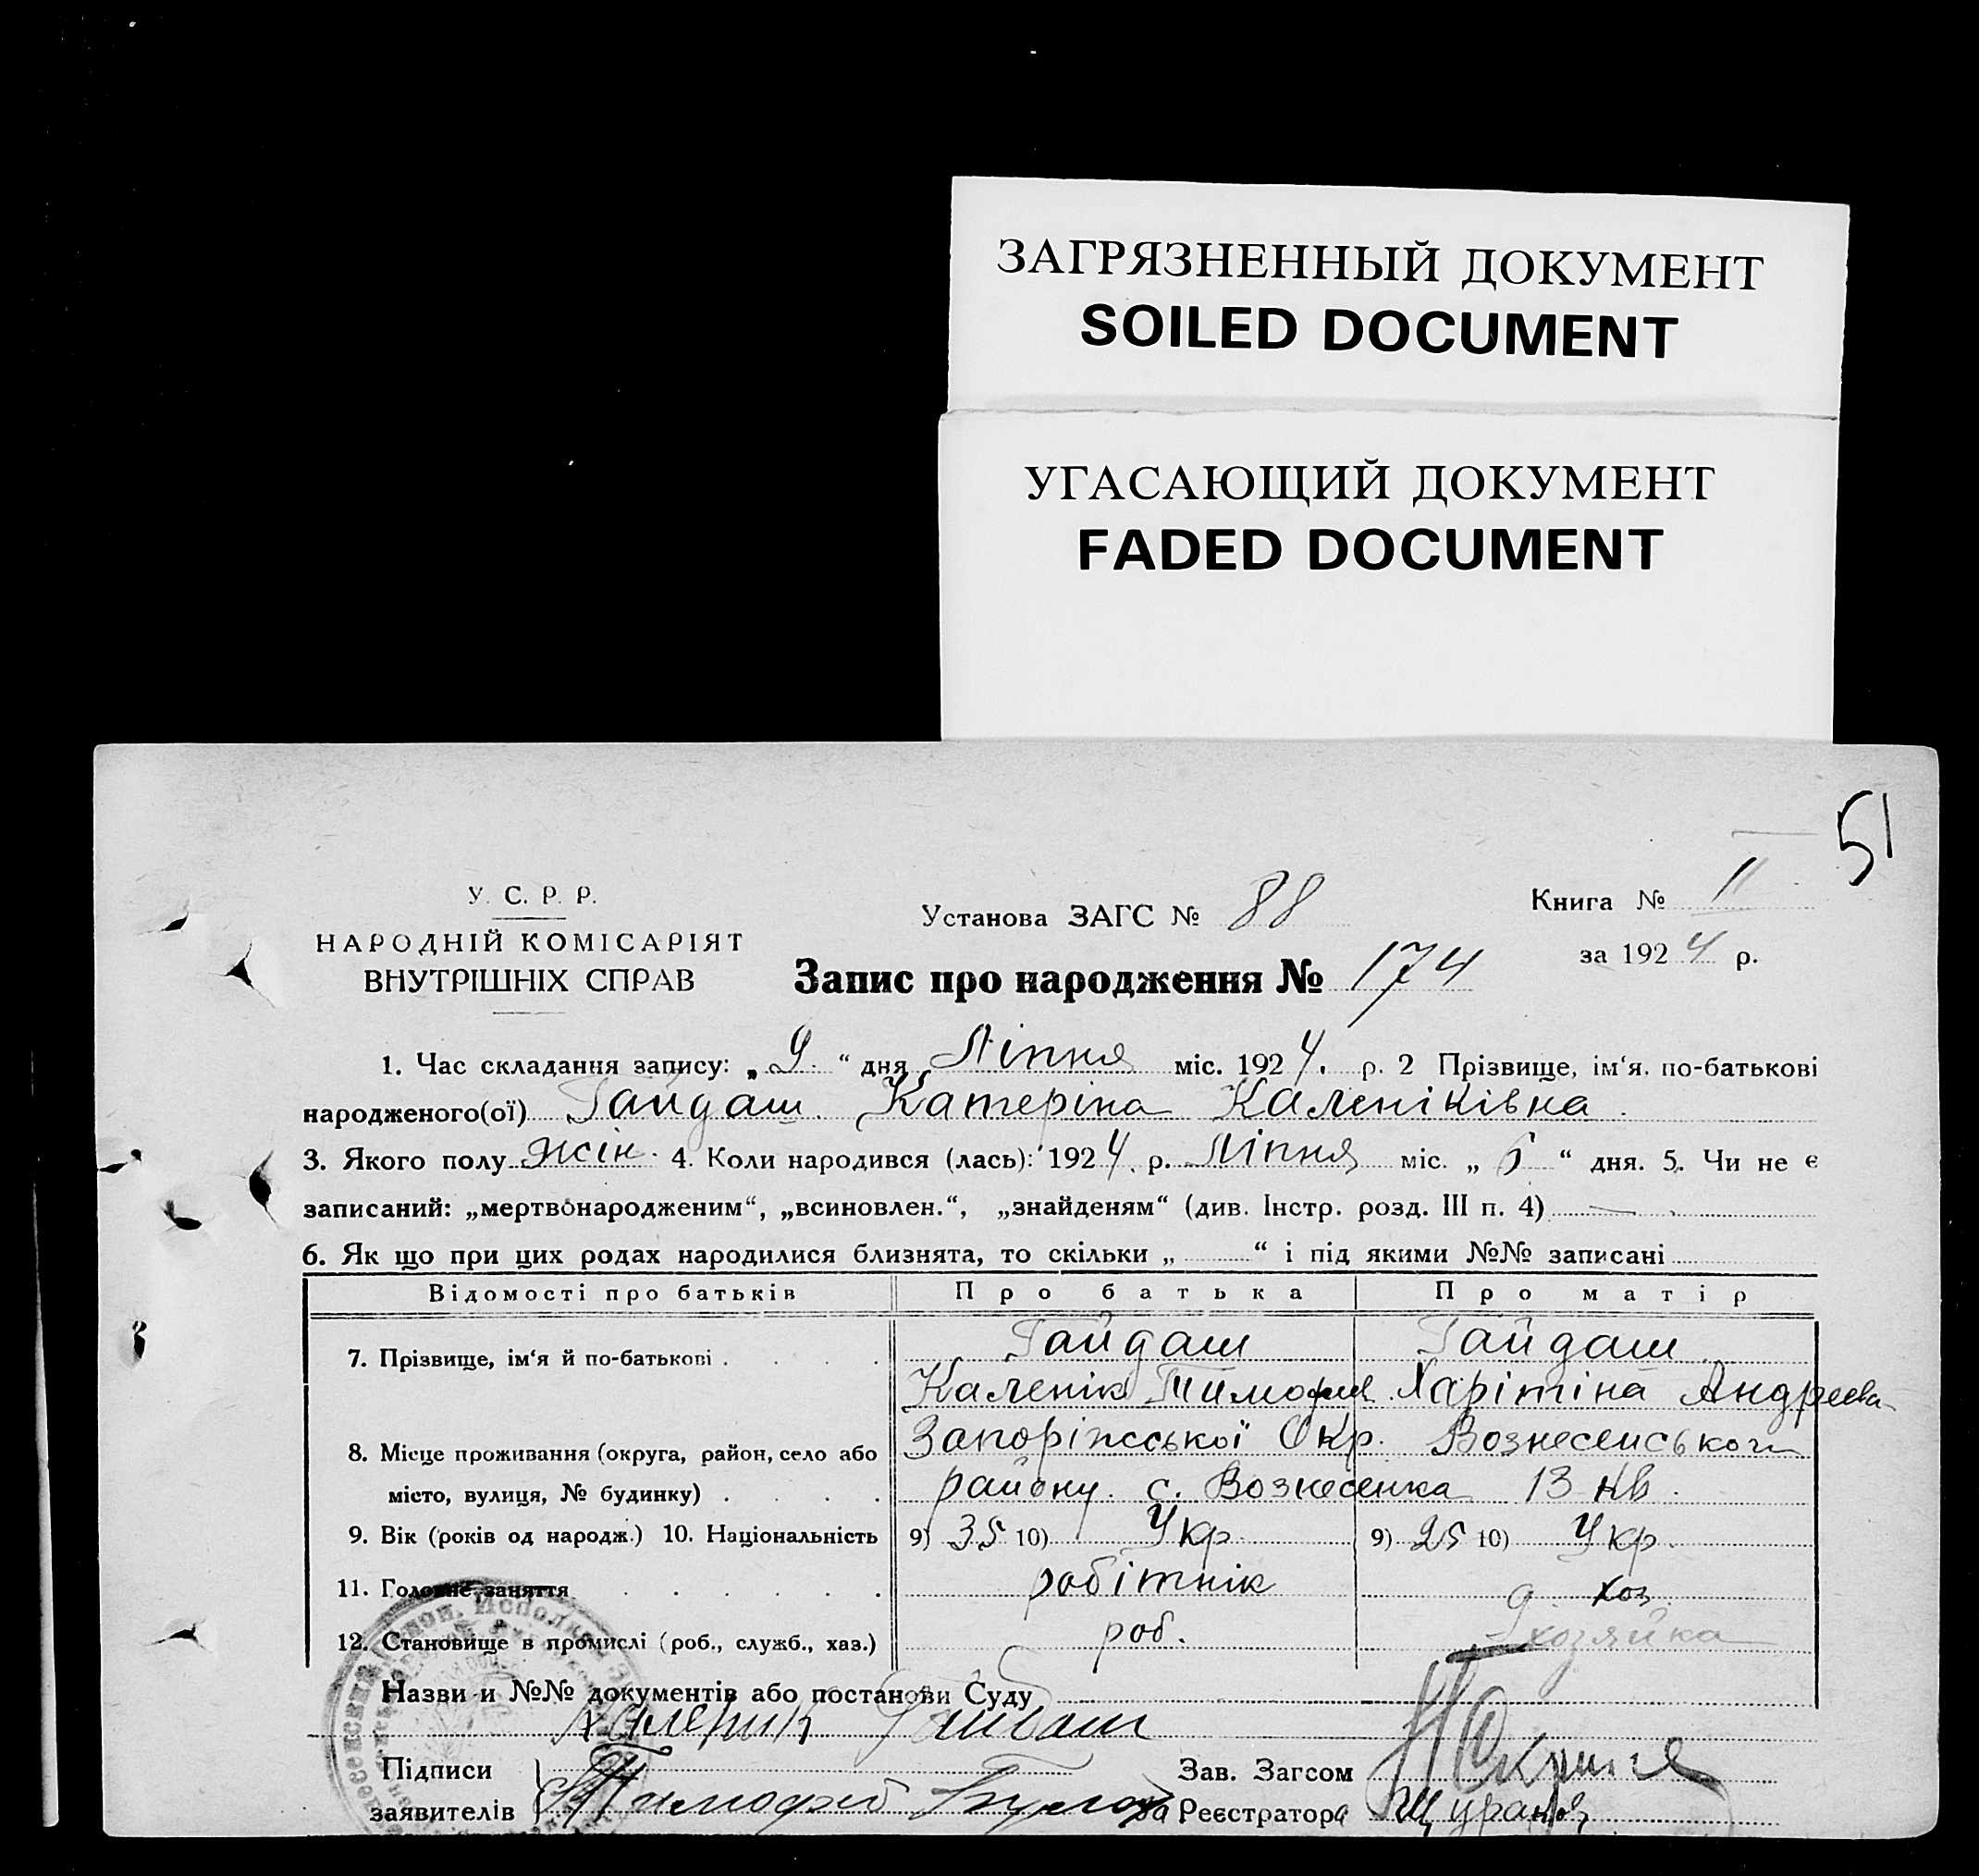 ЗАГРЯЗНЕННЫЙ ДОКУМЕНТ
SOILED DOCUMENT
УГАСАЮЩИЙ ДОКУМЕНТ
FADED DOCUMENT
51
У. С. Р. Р.
НАРОДНІЙ КОМІСАРІЯТ
ВНУТРІШНІХ СПРАВ
Установа ЗАГС № 88
Книга № II
за 1924 р.
Запис про народження № 174
1. Час складання запису: „9.“ дня Ліпня міс. 1924. р. 2 Прізвище, ім‘я, по-батькові
народженого(ої) Гайдаш Катеріна Каленіківна
3. Якого полу жін. 4. Коли народився (лась): 1924. р. Ліпня міс. „6“ дня. 5. Чи не є
записаний: „мертвонародженим“, „всиновлен.“, „знайденям“ (див. Інстр. розд. III п. 4) —
6. Як що при цих родах народилися близнята, то скільки „ “ і під якими №№ записані
Відомості про батьків Про батька Про матір
7. Прізвище, ім‘я й по-батькові . . . . Гайдаш Гайдаш
Каленік Тимофия Харітіна Андреева
8. Місце проживання (округа, район, село або Запоріжської Окр. Вознесенського
місто, вулиця, № будинку) . . . . району. с. Вознесенка 13 кв.
9. Вік (років од народж.) 10. Національність 9) 35 10) Укр. 9) 25 10) Укр.
11. Головне заняття . . . . . . робітнік д. хоз.
12. Становище в промислі (роб., служб., хаз.) роб. хозяйка
Назви и №№ документів або постанови Суду
Каленик Гайдаш
Підписи
заявителів Тимофей
Зав. Загсом
за Реєстратора